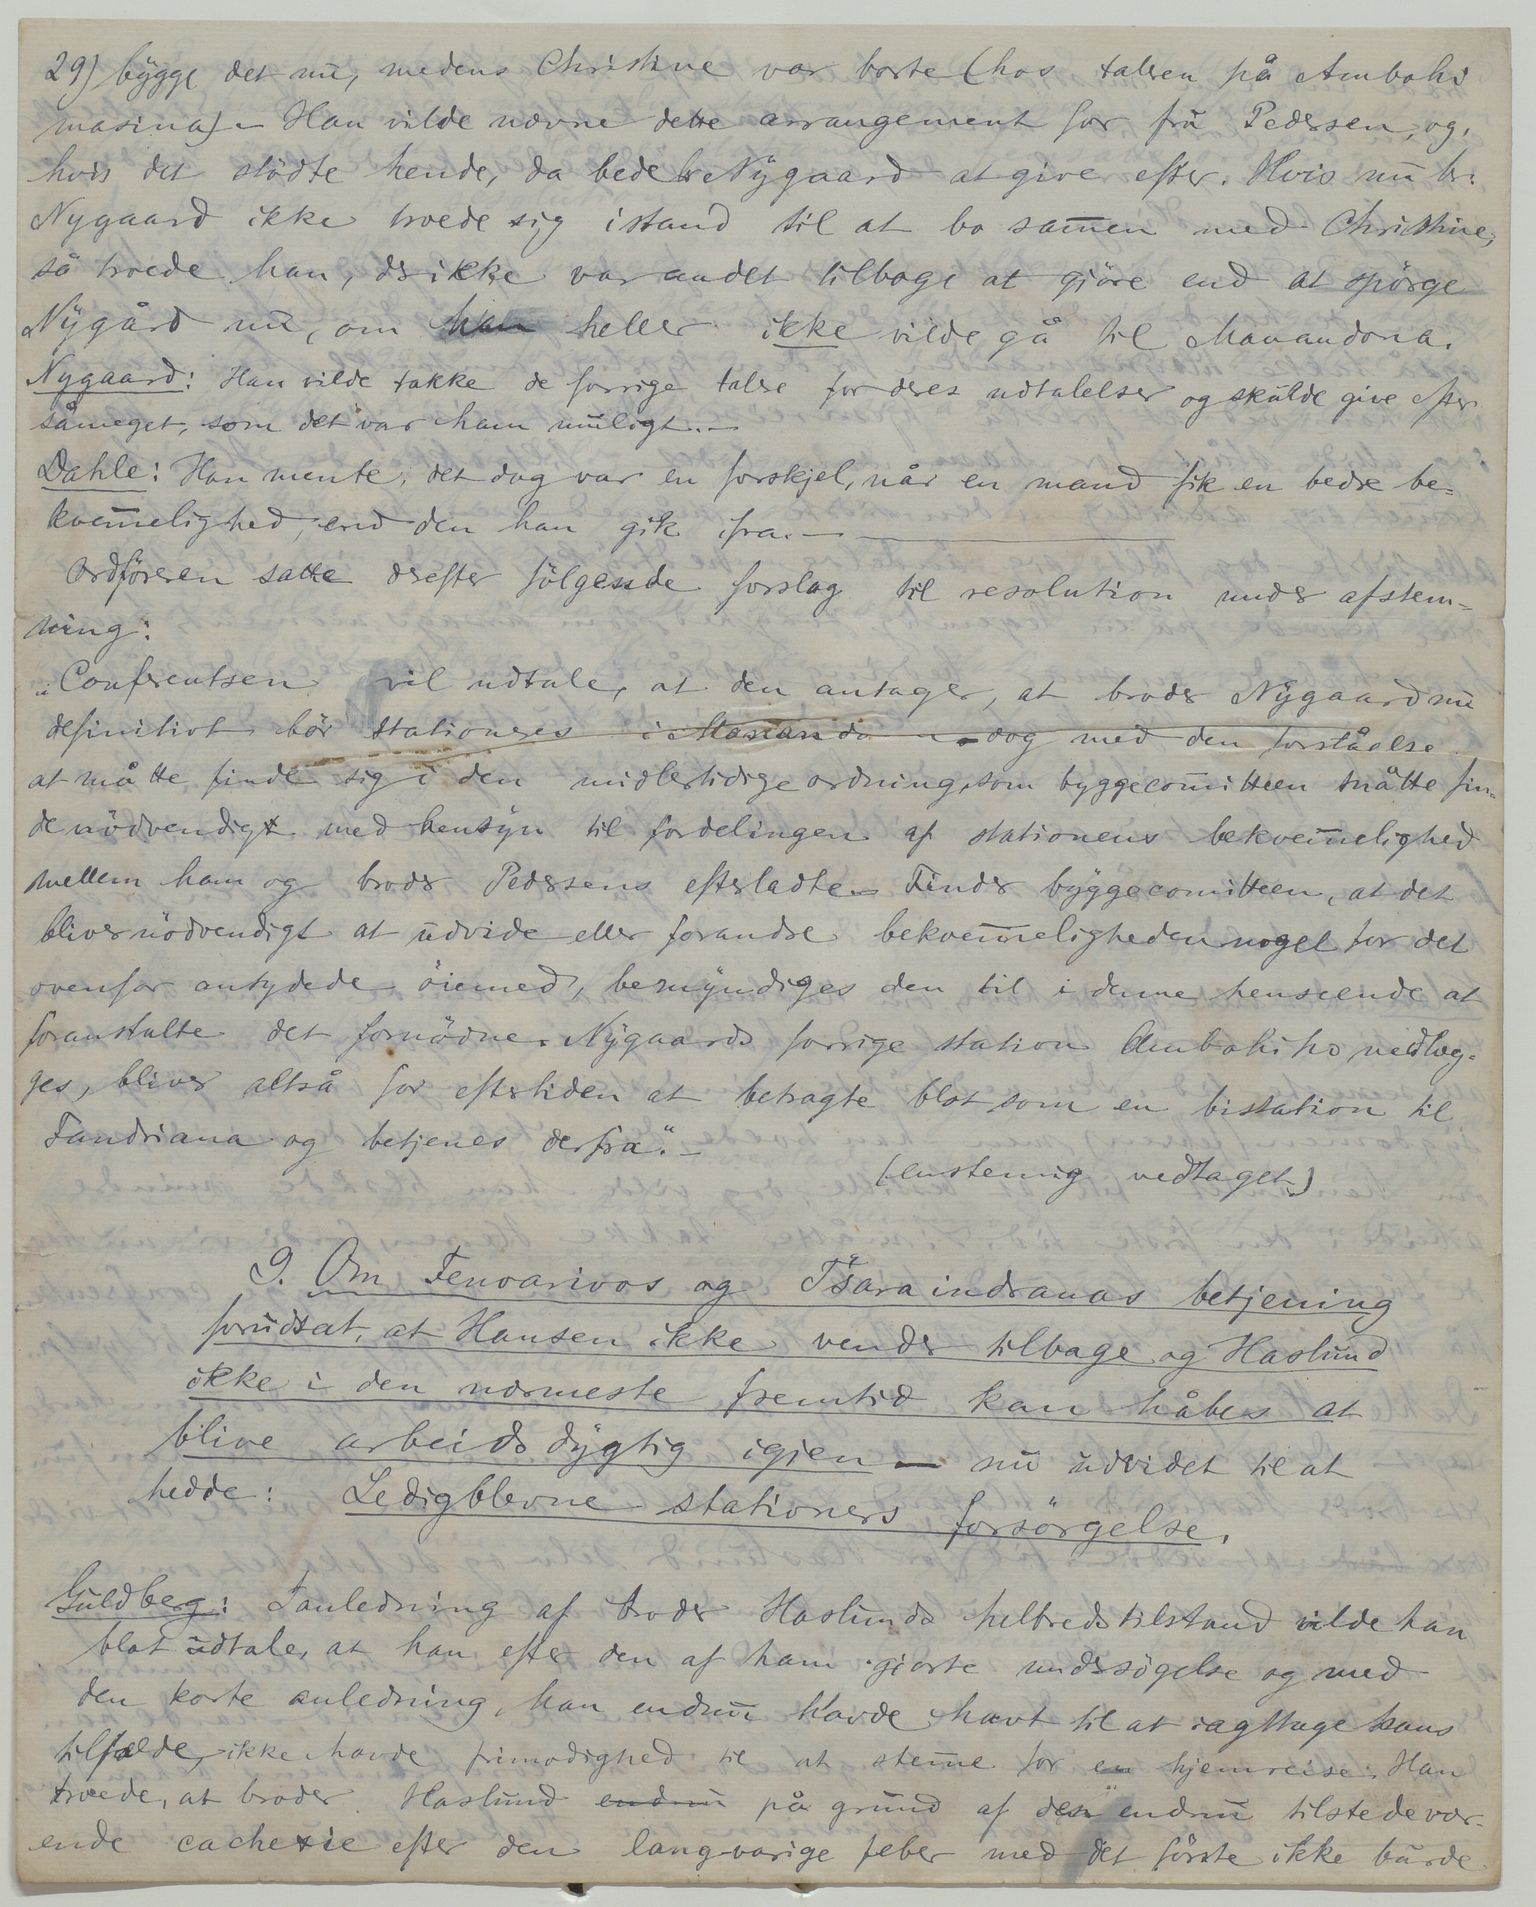 29) bygge det nu, medens Christine var borte (hos taleren på Ambohi
masina).- Han vilde nævne dette arrangement for fru Pedersen, og,
hvis det stödte hende, da bede br. Nygaard at give efter. Hvis nu br:
Nygaard ikke troede sig istand til at bo sam̄en med Christine,
så troede han, der ikke var andet tilbage at gjöre end at spörge
Nygård nu, om han heller ikke vilde gå til Manandona.
Nygaard: Han vilde takke de forrige talere for deres udtalelser og skulde give efter
såmeget, som det var ham muligt.-
Dahle: Han mente, det dog var en forskjel, når en mand fik en bedre be-
kvem̄elighed, end den han gik ifra.-
Ordföreren satte derefter fölgende forslag til resolution under afstem-
ning:
"Conferentsen vil udtale, at den antager, at broder Nygaard nu
definitivt bör stationeres i Manandona dog med den forståelse
at måtte finde sig i den midlertidige ordning, som byggecom̄itteen måtte fin-
de nödvendigt med hensyn til fordelingen af stationens bekvem̄elighed
mellem ham og broder Pedersens efterladte.- Finder byggecomitteen, at det
bliver nödvendigt at udvide eller forandre bekvem̄eligheden noget for det
ovenfor antydede öiemed, bemyndiges den til i denne henseende at
foranstalte det fornödne. Nygaards forrige station Ambohiho nedlæg-
ges, bliver altså for eftertiden at betragte blot som en bistation til
Fandriana og betjenes derfra".-
(enstemig vedtaget.)
9. Om Fenoarivos og Tsaraindranas betjening
forudsat, at Hansen ikke vender tilbage og Haslund
ikke i den nærmeste fremtid kan håbes at
blive arbeidsdygtig igjen — nu udvidet til at
hedde: Ledigblevne stationers forsörgelse.
Guldberg: I anledning af broder Haslunds helbredstilstand vilde han
blot udtale, at han efter den af ham gjorte undersögelse og med
den korte anledning, han endnu havde havt til at iagttage hans
tilfælde, ikke havde frimodighed til at stem̄e for en hjemreise. Han
troede, at broder Haslund endnu på grund af den endnu tilstedevær-
ende cachexie efter den langvarige feber med det förste ikke burde